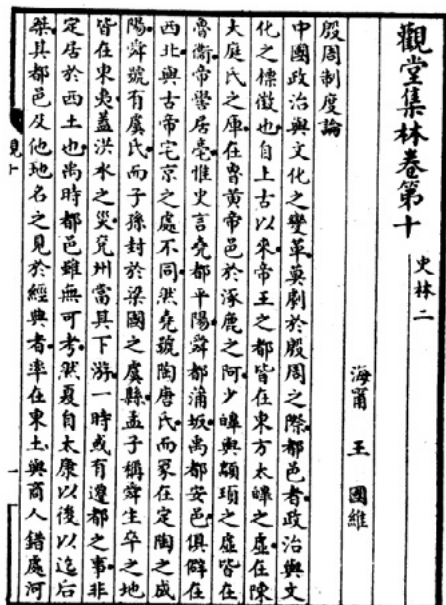 觀堂集林卷第十
史林二
海甯 王國維
殷周制度論
中國政治與文化之變革莫劇於殷周之際都邑者政治與文
化之標徵也自上古以來帝王之都皆在東方太皞之虛在陳
大庭氏之庫在魯黃帝邑於涿鹿之阿少皞與顓頊之虛皆在
魯衞帝嚳居亳惟史言堯都平陽舜都蒲坂禹都安邑俱僻在
西北與古帝宅京之處不同然堯號陶唐氏而冢在定陶之成
陽舜號有虞氏而子孫封於梁國之虞縣孟子稱舜生卒之地
皆在東夷蓋洪水之災兗州當其下游一時或有遷都之事非
定居於西土也禹時都邑雖無可考然夏自太康以後以迄后
桀其都邑及他地名之見於經典者率在東土與商人錯處河
觀十
一